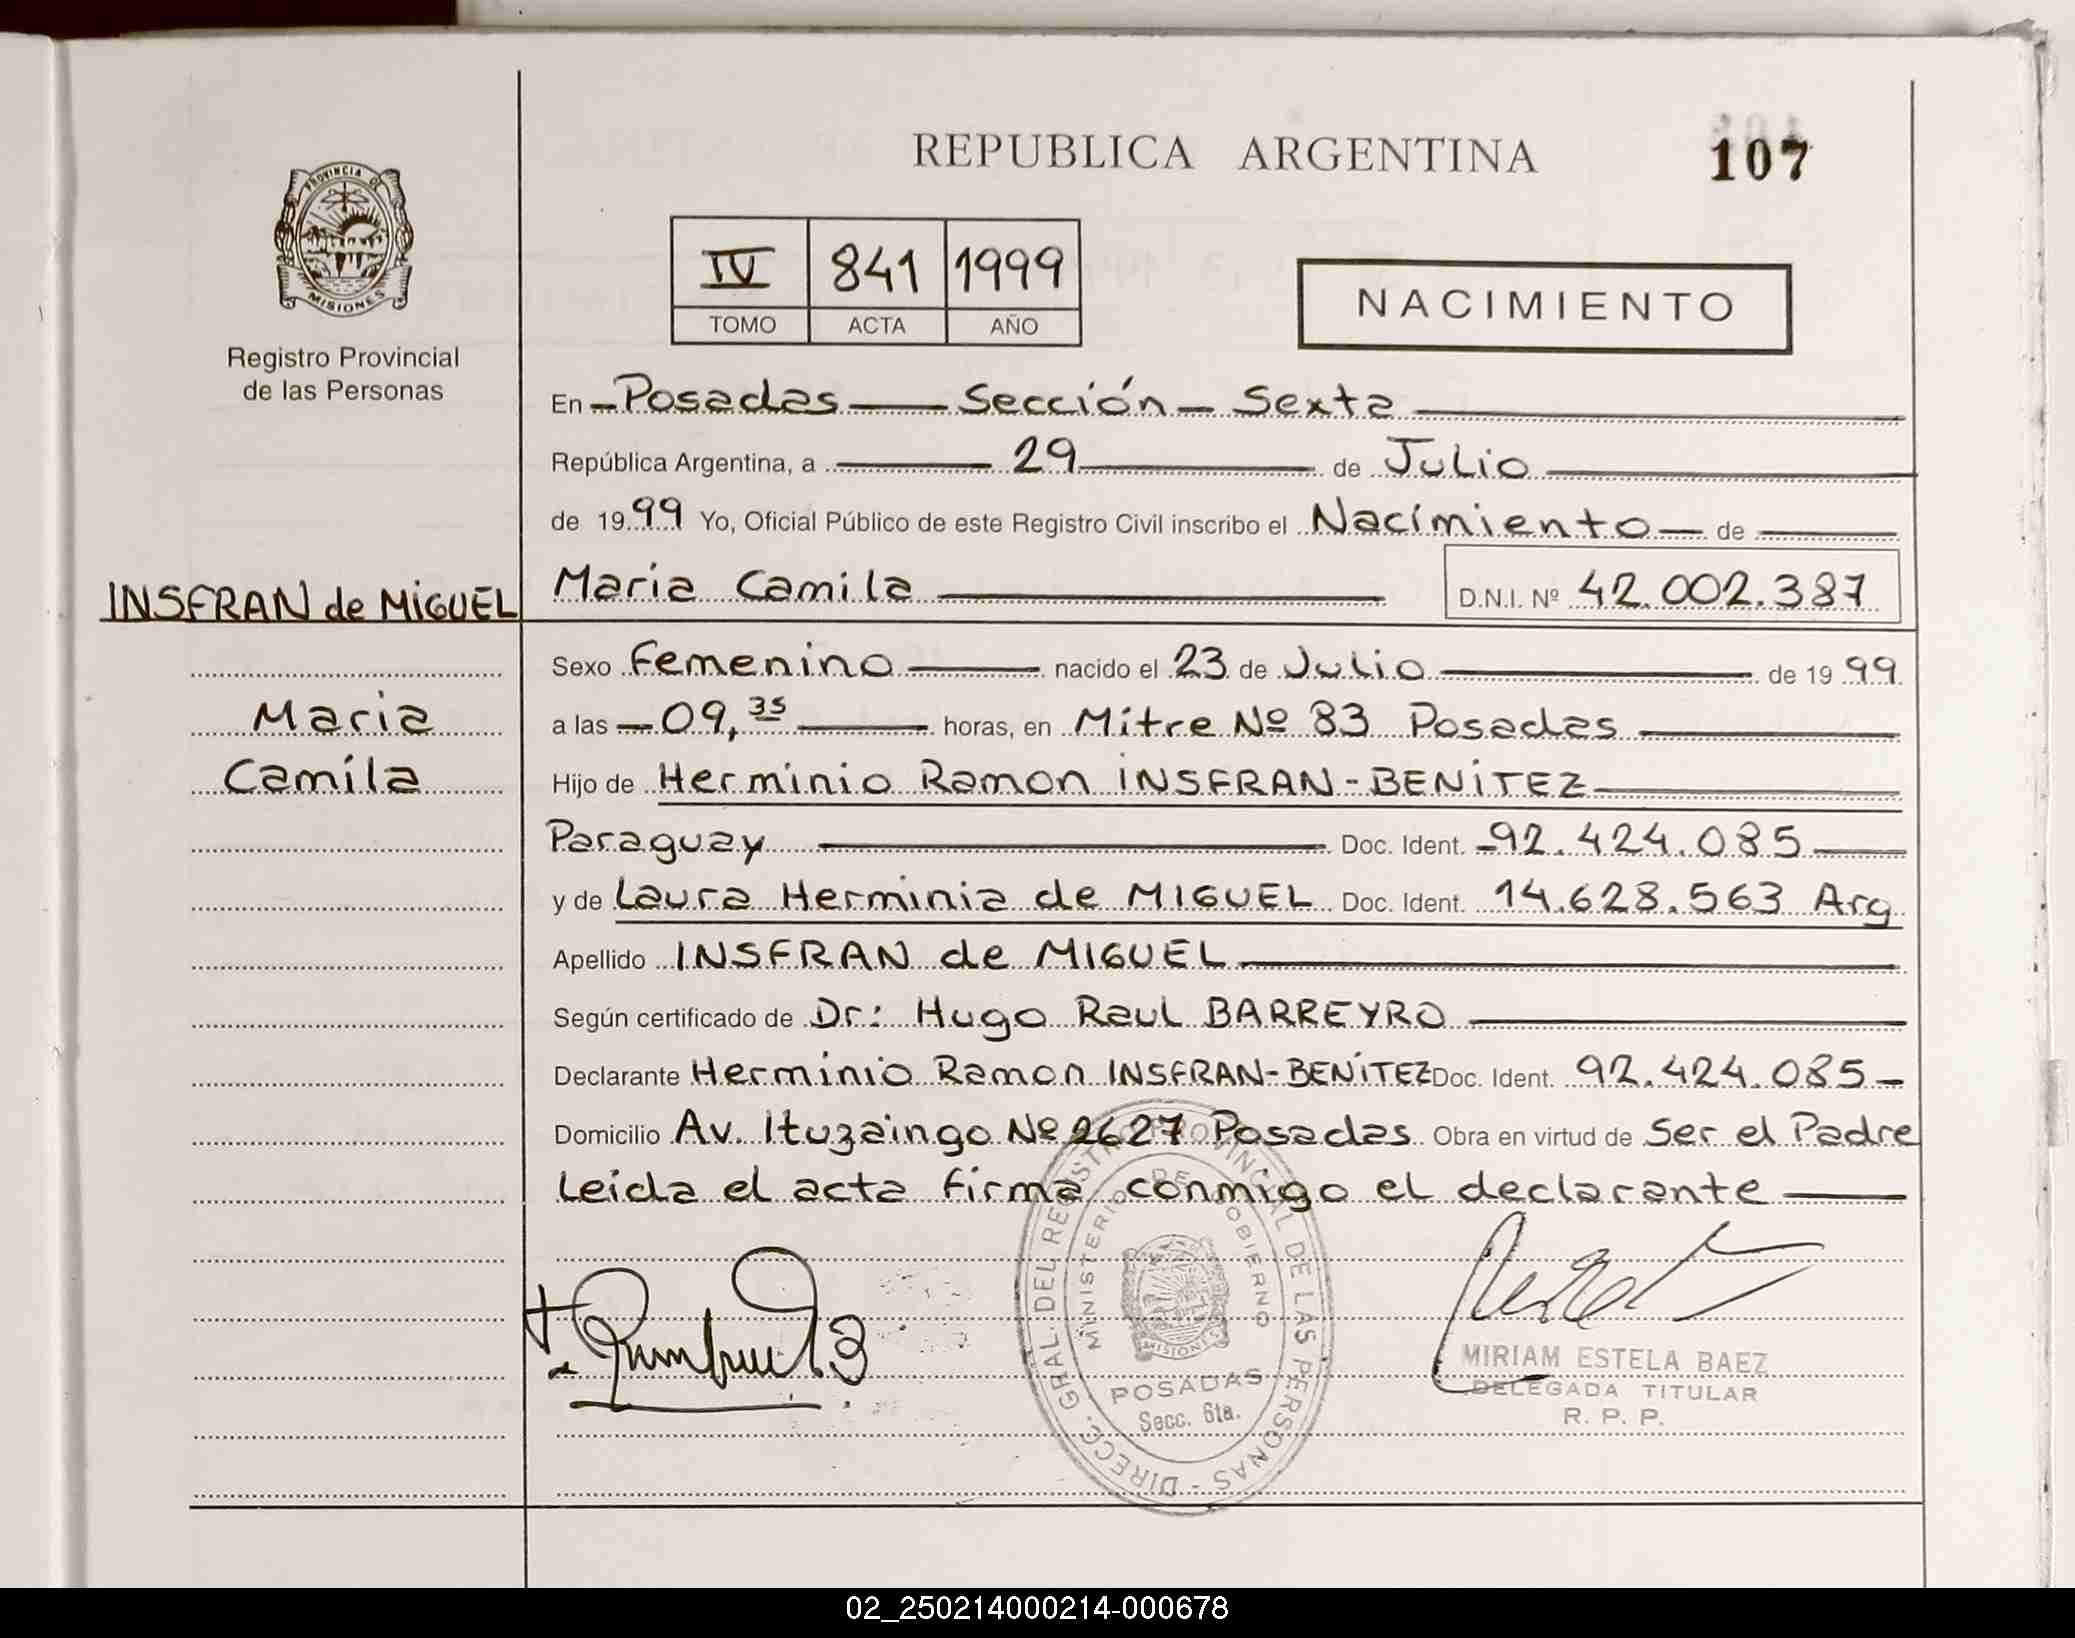 REPUBLICA ARGENTINA
107
PROVINCIA DE
MISIONES
Registro Provincial
de las Personas
IV 841 1999
TOMO ACTA AÑO
NACIMIENTO
En Posadas Sección Sexta
República Argentina, a 29 de Julio
de 1999 Yo, Oficial Público de este Registro Civil inscribo el Nacimiento de
INSFRAN de MIGUEL
Maria Camila D.N.I. Nº 42.002.387
Maria
Camila
Sexo Femenino nacido el 23 de Julio de 1999
a las 09,35 horas, en Mitre Nº 83 Posadas
Hijo de Herminio Ramon INSFRAN-BENITEZ
Paraguay Doc. Ident. 92.424.085
y de Laura Herminia de MIGUEL Doc. Ident. 14.628.563 Arg
Apellido INSFRAN de MIGUEL
Según certificado de Dr: Hugo Raul BARREYRO
Declarante Herminio Ramon INSFRAN-BENITEZ Doc. Ident. 92.424.085
Domicilio Av. Ituzaingo Nº 2627 Posadas Obra en virtud de Ser el Padre
Leida el acta firma conmigo el declarante
DIRECC. GRAL. DEL REGISTRO PROVINCIAL DE LAS PERSONAS
MINISTERIO DE GOBIERNO
MISIONES
POSADAS
Secc. 6ta.
MIRIAM ESTELA BAEZ
DELEGADA TITULAR
R. P. P.
02_250214000214-000678